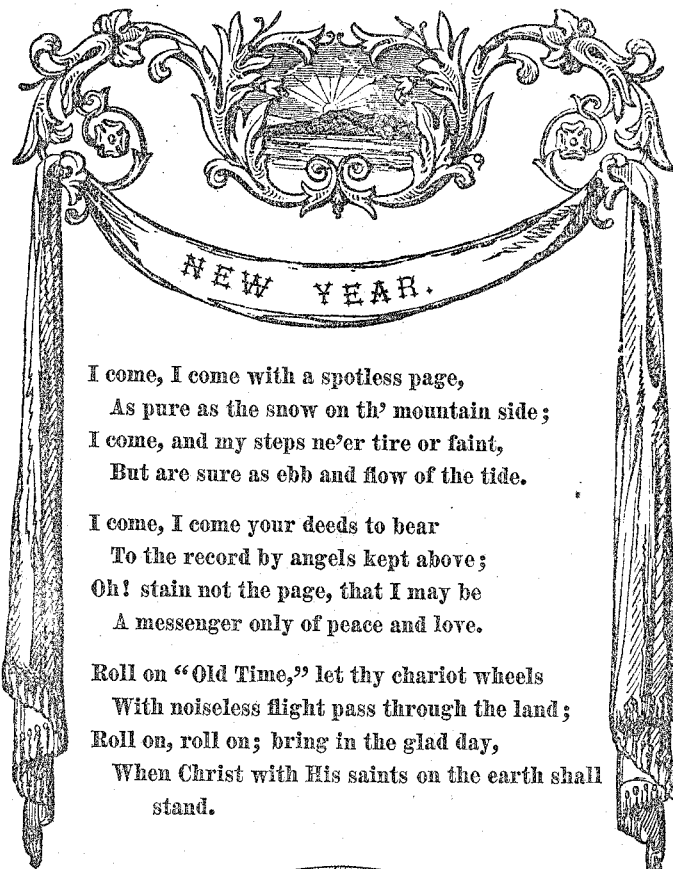 NEW YEAR.
I come, I come with a spotless page,
As pure as the snow on th' mountain side;
I come, and my steps ne'er tire or faint,
But are sure as ebb and flow of the tide.
I come, I come your deeds to bear
To the record by angels kept above;
Oh! stain not the page, that I may be
A messenger only of peace and love.
Roll on “Old Time,” let thy chariot wheels
With noiseless flight pass through the land;
Roll on, roll on; bring in the glad day,
When Christ with His saints on the earth shall
stand.